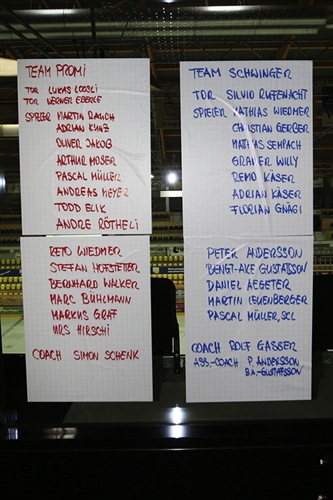 TEAM PROMI
TOR LUKAS LOOSLI
TOR WERNER EBERLE
SPIELER MARTIN RAUCH
ADRIAN KUNZ
OLIVER JAKOB
ARTHUR MOSER
PASCAL MÜLLER
ANDREAS MEYER
TODD ELIK
ANDRE RÖTHELI
RETO WIEDMER
STEFAN HOFSTETTER
BERNHARD WALKER
MARC BÜHLMANN
MARKUS GRAF
URS HIRSCHI
COACH SIMON SCHENK
TEAM SCHWINGER
TOR SILVIO RÜFENACHT
SPIELER MATHIAS WIEDMER
CHRISTIAN GERBER
MATHIAS SEMPACH
GRABER WILLY
REMO KÄSER
ADRIAN KÄSER
FLORIAN GNÄGI
PETER ANDERSSON
BENGT-AKE GUSTAFSSON
DANIEL AEGERTER
MARTIN LEUENBERGER
PASCAL MÜLLER, SCL
COACH ROLF GASSER
ASS.-COACH P. ANDERSSON
B.A.-GUSTAFSSON